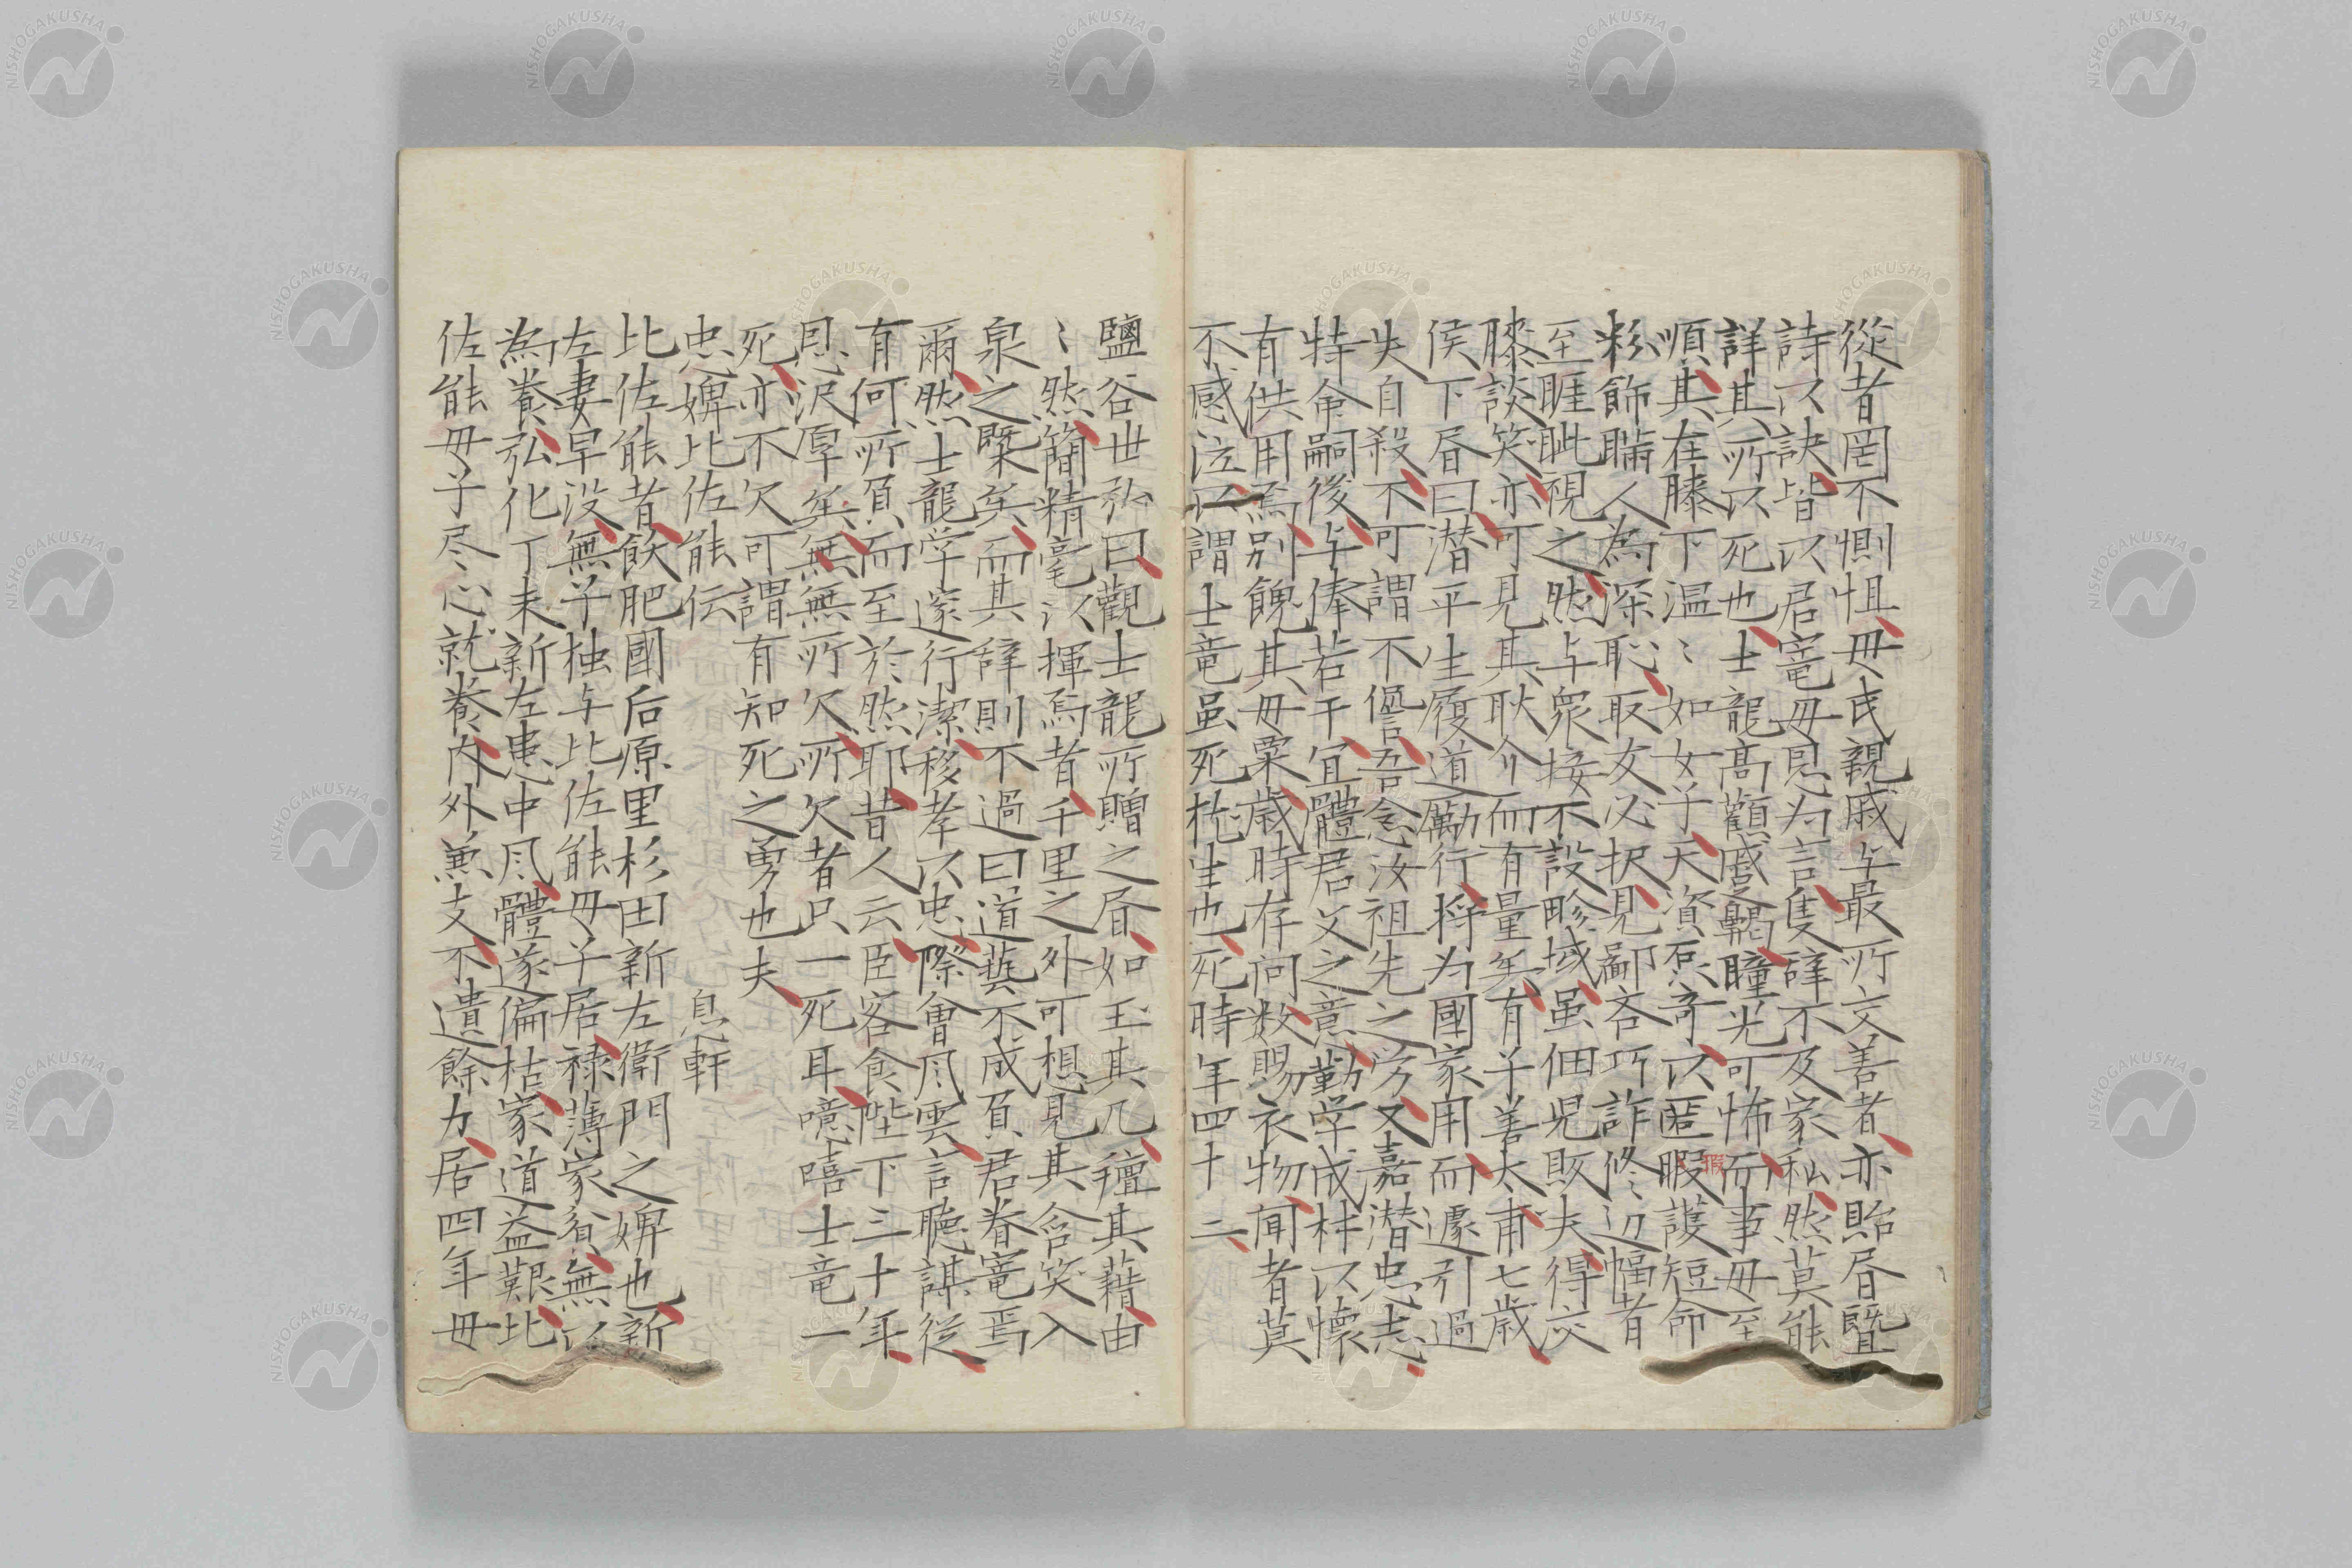 從者罔不惻怛毋氏親戚与最所交善者亦貽昏暨
詩以訣皆以居寵毋恩为言隻辞不及家私然莫能
詳其所以死也士龍高顴戚鶡瞳光可怖而事毋至
順其在膝下温〻如女子天資忠奇以匿暇護短命
瑕
粉飾瞞人為深恥取友必択見鄙吝巧詐修辺幅者
至睚眦視之然与衆接不設畛域虽佃児販夫得交
膝談笑亦可見其耿介而有量矣有子善太甫七歳
侯下昏曰潜平生履道勵行将为國家用而遽引過
失自殺不可謂不諐吾念汝祖先之労又嘉潜忠志
特命嗣後与俸若干宜體君父之意勤学成材以懐
有供用焉别餽其毋粟歳時存问数賜衣物聞者莫
不感泣以謂士竜虽死於生也死時年四十二
鹽谷世弘曰觀士龍所贈之昏如玉其几穜其藉由
〻然簡精毫以揮焉者千里之外可想見其含笑入
泉之槩矣而其辞則不過曰道藝不成負君眷寵焉
爾然士龍学邃行潔移孝以忠際會凨雲言聴謀從
有何所負而至於然耶昔人云臣客食陛下三十年
恩沢厚矣無無所欠所欠者只一死耳噫嘻士竜一
死亦不欠可謂有知死之勇也夫
忠婢比佐能伝 息軒
比佐能者飫肥國后原里杉田新左衛門之婢也新
左妻早没無子独与比佐能毋子居禄薄家貧無以
為養弘化丁未新左患中凨體遂偏枯家道益艱比
佐能毋子尽心就養内外兼支不遺餘力居四年毋